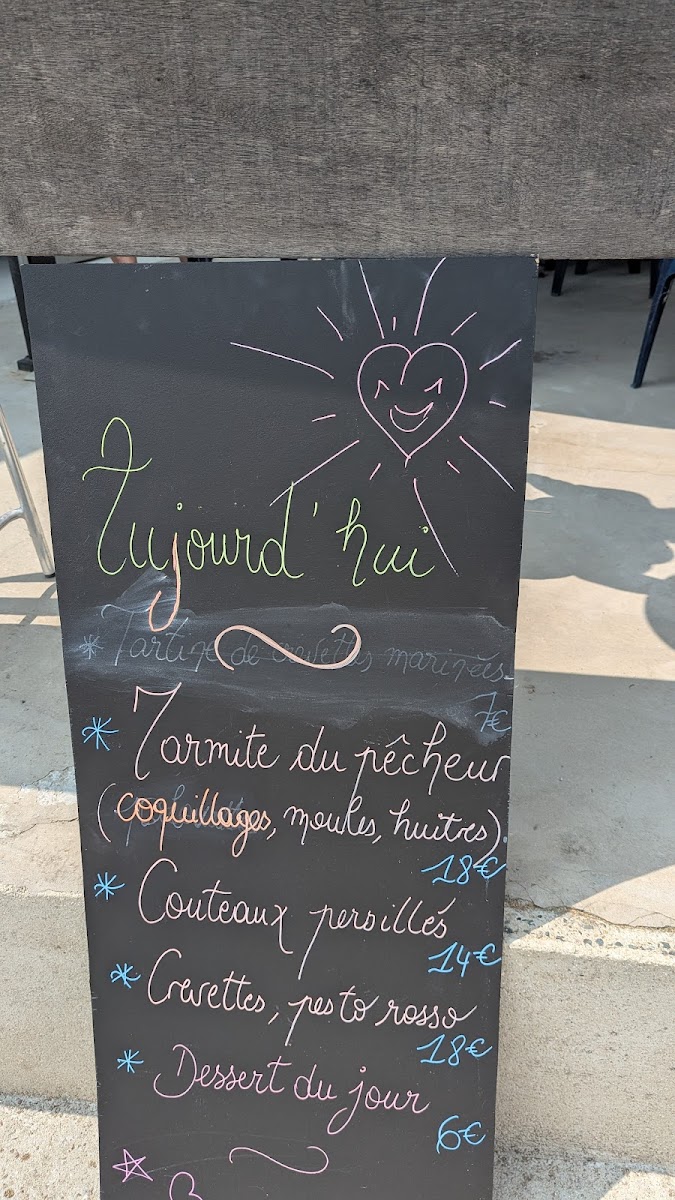 Aujourd'hui
* Tartine de crevettes marinées
7€
* Marmite du pêcheur
(coquillages, moules, huîtres)
18€
* Couteaux persillés
14€
* Crevettes, pesto rosso
18€
* Dessert du jour
6€